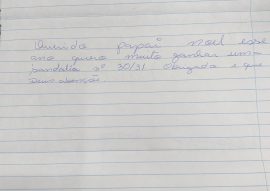 Querido papai noel esse
ano quero muito ganhar uma
sandalia nº 30/31 obrigada e que
Deus abençoe